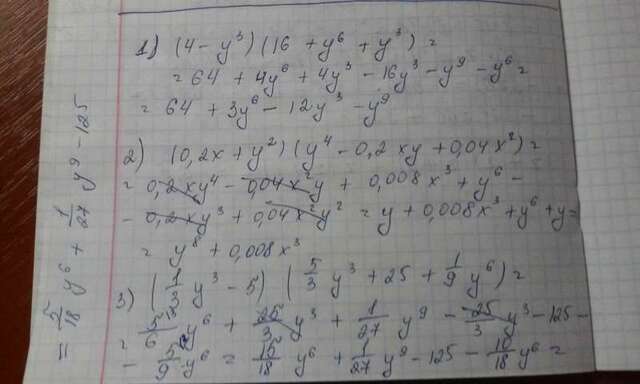 1) (4 - y³)(16 + y⁶ + y³) =
= 64 + 4y⁶ + 4y³ - 16y³ - y⁹ - y⁶ =
= 64 + 3y⁶ - 12y³ - y⁹
2) (0,2x + y²)(y⁴ - 0,2xy + 0,04x²) =
= 0,2xy⁴ - 0,04x²y + 0,008x³ + y⁶ -
- 0,2xy³ + 0,04x²y² = y + 0,008x³ + y⁶ + y =
= y⁸ + 0,008x³
3) (1/3 y³ - 5)(5/3 y³ + 25 + 1/9 y⁶) =
= 5/6 y⁶ + 25/3 y³ + 1/27 y⁹ - 25/3 y³ - 125 -
- 5/9 y⁶ = 15/18 y⁶ + 1/27 y⁹ - 125 - 10/18 y⁶ =
= 5/18 y⁶ + 1/27 y⁹ - 125